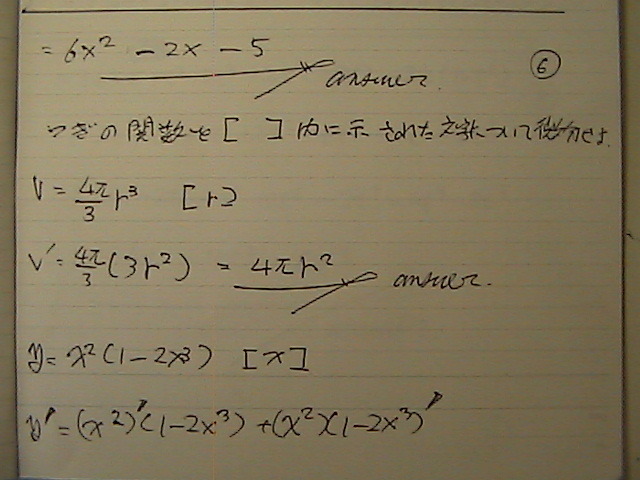 = 6x² - 2x - 5
⑥
answer.
つぎの関数を [ ] 内に示された文字について微分せよ.
V = 4π/3 r³ [r]
V' = 4π/3 (3r²) = 4πr²
answer.
y = x²(1-2x³) [x]
y' = (x²)'(1-2x³) + (x²)(1-2x³)'